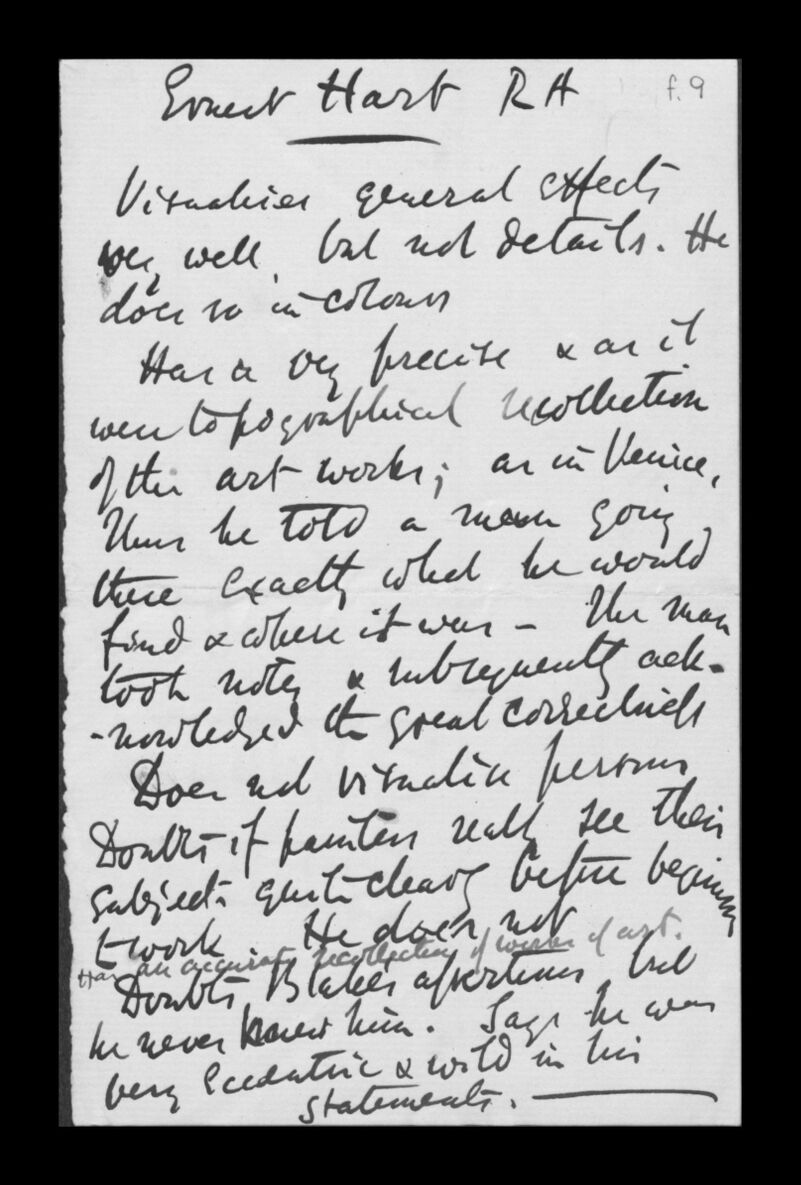 Ernest Hart RA
f.9
Visualises general effects
very well, but not details. He
does so in colours
Has a very precise & as it
were topographical recollection
of the art works; as in Venice,
Thus he told a man going
there exactly what he would
find & where it was – The man
took notes & subsequently ack-
-nowledged the great correctness
Does not visualise persons
Doubts if painters really see their
subjects quite clearly before beginning
to work He does not
Has an accurate recollection of works of art.
Doubts Blakes assertions, but
he never knew him. Says he was
very eccentric & wild in his
statements.